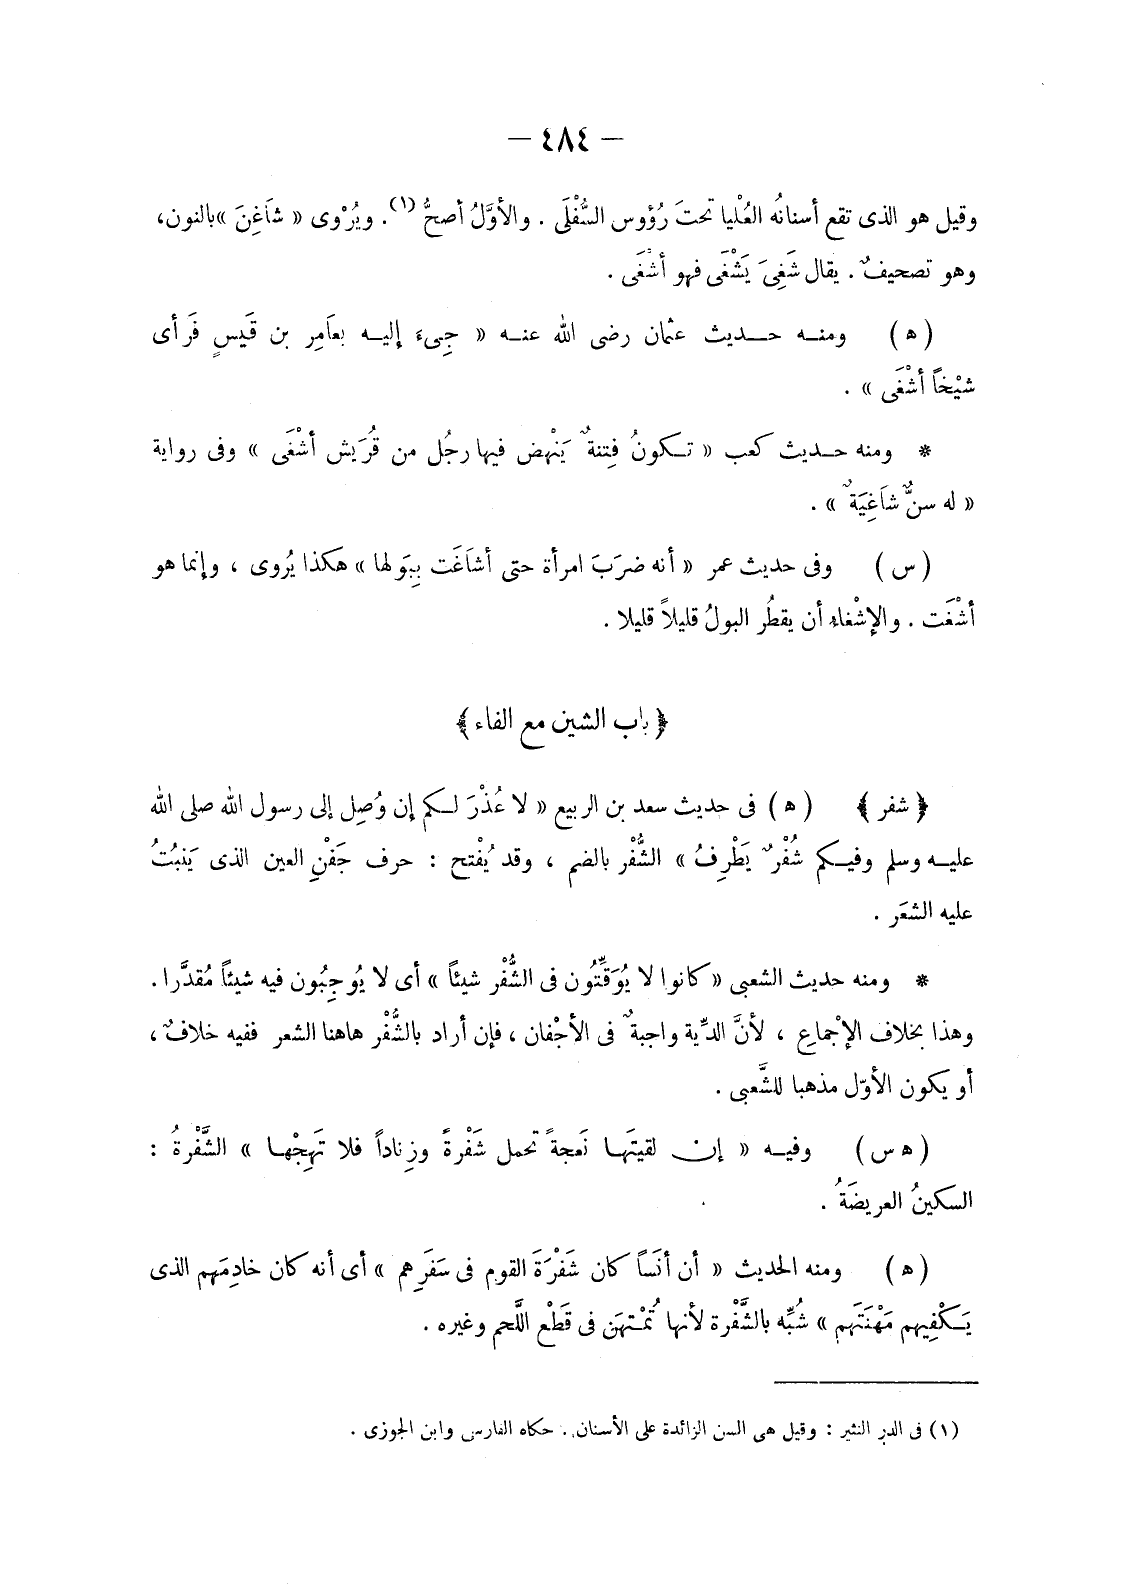 — ٤٨٤ —
وقيل هو الذى تقع أسنانُه العُلْيا تحتَ رُؤوس السُّفْلَى . والأوَّلُ أصحُّ (١) . ويُرْوى « شاَغِنَ » بالنون،
وهو تصحيفٌ . يقال شَغِىَ يَشْغَى فهو أشْغَى .
( ه ) ومنه حديث عثمان رضى الله عنه « جِىءَ إليه بعاَمِر بن قَيسٍ فَرأى
شيْخاً أشْغَى » .
* ومنه حديث كعب « تكونُ فِتنةٌ يَنْهض فيها رجُل من قُرَيش أشْغَى » وفى رواية
« له سنٌّ شاَغِيَةٌ » .
( س ) وفى حديث عمر « أنه ضرَبَ امرأة حتى أشاَغَت بِبَولها » هكذا يُروى ، وإنما هو
أشْغَت . والإشْغاء أن يقطُر البولُ قليلاً قليلا .
﴿ باب الشين مع الفاء ﴾
﴿ شفر ﴾ ( ه ) فى حديث سعد بن الربيع « لا عُذْرَ لكم إن وُصِل إلى رسول الله صلى الله
عليه وسلم وفيكم شُفْرٌ يَطْرِفُ » الشُّفْر بالضم ، وقد يُفْتح : حرف جَفْنِ العين الذى يَنبُتُ
عليه الشعَر .
* ومنه حديث الشعبى « كانوا لا يُوَقِّتُون فى الشُّفْر شيئاً » أى لا يُوجِبُون فيه شيئاً مُقدَّرا .
وهذا بخلاف الإجْماع ، لأنَّ الدِّية واجبةٌ فى الأجْفان ، فإن أراد بالشُّفْر هاهنا الشعر ففيه خلافٌ ،
أو يكون الأوّل مذهبا للشَّعبى .
( ه س ) وفيه « إن لقيتَها نَعجةً تحمل شَفْرةً وزِناداً فلا تَهِجْها » الشَّفْرةُ :
السكينُ العريضَةُ .
( ه ) ومنه الحديث « أن أنَساً كان شَفْرَةَ القوم فى سَفَرِهم » أى أنه كان خادِمَهم الذى
يَكْفِيهم مَهْنَتَهم » شُبِّه بالشَّفْرة لأنها تُمْتهَن فى قَطْع اللَّحم وغيره .
(١) فى الدر النثير : وقيل هى السن الزائدة على الأسنان . حكاه الفارسى وابن الجوزى .